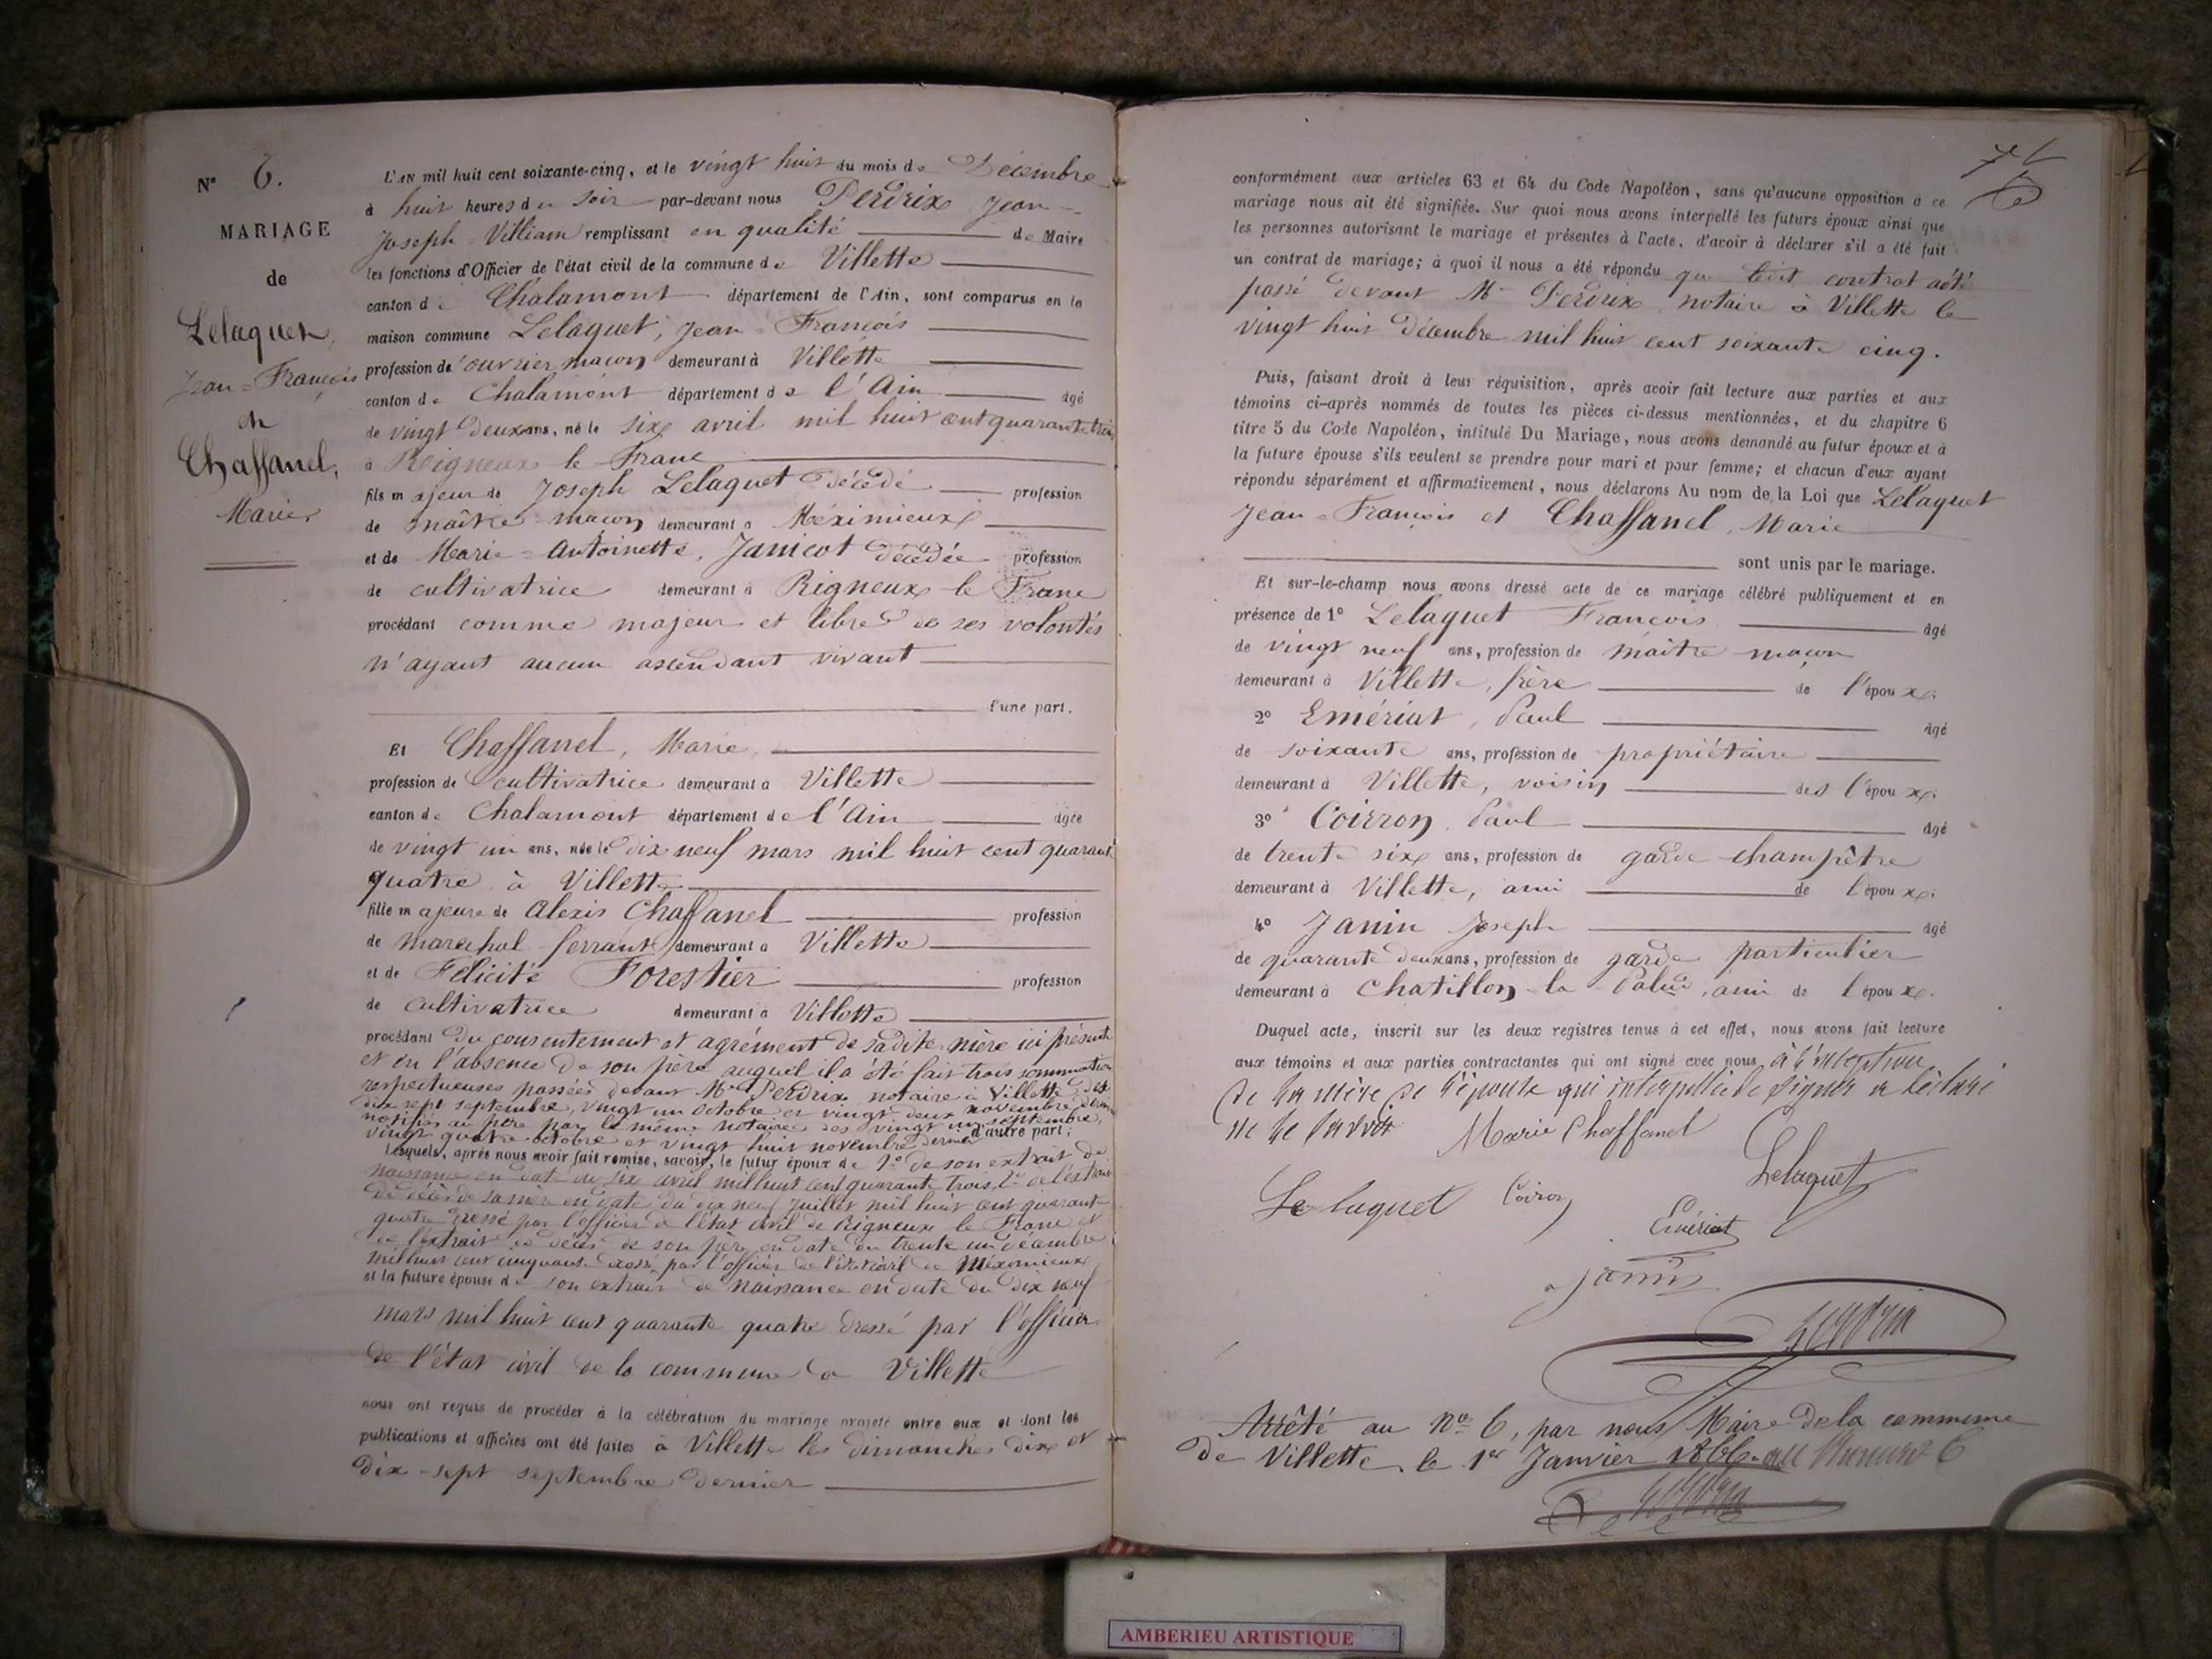 N° 6.
MARIAGE
de
Lelaquet,
Jean-François
et
Chaffanel,
Marie
L'AN mil huit cent soixante-cinq, et le vingt huit du mois de Décembre
à huit heures du soir par-devant nous Perdrix Jean-
Joseph-Villiam remplissant en qualité de Maire
les fonctions d'Officier de l'état civil de la commune de Villette
canton de Chalamont département de l'Ain, sont comparus en la
maison commune Lelaquet, Jean-François
profession de ouvrier maçon demeurant à Villette
canton de Chalamont département de l'Ain âgé
de vingt deux ans, né le six avril mil huit cent quarante trois
à Reigneux le Franc
fils majeur de Joseph Lelaquet Décédé profession
de maître maçon demeurant à Méximieux
et de Marie-Antoinette, Janicot décédée profession
de cultivatrice demeurant à Rigneux le Franc
procédant comme majeur et libre de ses volontés
n'ayant aucun ascendant vivant
l'une part.
Et Chaffanel, Marie,
profession de cultivatrice demeurant à Villette
canton de Chalamont département de l'Ain âgée
de vingt un ans, née le dix neuf mars mil huit cent quarante
quatre à Villette
fille majeure de Alexis Chaffanel profession
de maréchal ferrant demeurant à Villette
et de Félicité Forestier profession
de cultivatrice demeurant à Villette
procédant du consentement et agrément de sadite mère ici présente
et en l'absence de son père auquel il a été fait trois sommations
respectueuses passées devant Me Perdrix notaire à Villette des
dix sept septembre, vingt un octobre et vingt deux novembre
notifiés au père par le même notaire des vingt un septembre,
vingt quatre octobre et vingt huit novembre dernier d'autre part;
Lesquels, après nous avoir fait remise, savoir, le futur époux de 1° de son extrait de
naissance en date du six avril mil huit cent quarante trois, 2° de l'extrait
de décès de sa mère en date du dix neuf Juillet mil huit cent quarante
quatre dressé par l'officier de l'état civil de Rigneux le Franc et
de l'extrait de décès de son père en date du trente un décembre
mil huit cent cinquante dressé par l'officier de l'état civil de Méximieux
et la future épouse de son extrait de naissance en date du dix neuf
mars mil huit cent quarante quatre dressé par l'officier
de l'état civil de la commune de Villette
nous ont requis de procéder à la célébration du mariage projeté entre eux et dont les
publications et affiches ont été faites à Villette les dimanches dix et
dix-sept septembre dernier
conformément aux articles 63 et 64 du Code Napoléon, sans qu'aucune opposition à ce
mariage nous ait été signifiée. Sur quoi nous avons interpellé les futurs époux ainsi que
les personnes autorisant le mariage et présentes à l'acte, d'avoir à déclarer s'il a été fait
un contrat de mariage; à quoi il nous a été répondu contrat a été
passé devant Me Perdrix notaire à Villette le
vingt huit décembre mil huit cent soixante cinq.
Puis, faisant droit à leur réquisition, après avoir fait lecture aux parties et aux
témoins ci-après nommés de toutes les pièces ci-dessus mentionnées, et du chapitre 6
titre 5 du Code Napoléon, intitulé Du Mariage, nous avons demandé au futur époux et à
la future épouse s'ils veulent se prendre pour mari et pour femme; et chacun d'eux ayant
répondu séparément et affirmativement, nous déclarons Au nom de la Loi que Lelaquet
Jean-François et Chaffanel, Marie
sont unis par le mariage.
Et sur-le-champ nous avons dressé acte de ce mariage célébré publiquement et en
présence de 1° Lelaquet François âgé
de vingt neuf ans, profession de maître maçon
demeurant à Villette, frère de l'époux.
2° Emériat, Paul âgé
de soixante ans, profession de propriétaire
demeurant à Villette, voisin des l'époux.
3° Coirron, Paul âgé
de trente six ans, profession de garde champêtre
demeurant à Villette, ami de l'époux.
4° Janin Joseph âgé
de quarante deux ans, profession de garde particulier
demeurant à Chatillon-la-Palud, ami de l'époux.
Duquel acte, inscrit sur les deux registres tenus à cet effet, nous avons fait lecture
aux témoins et aux parties contractantes qui ont signé avec nous, à l'exception
de la mère de l'épouse qui interpellée de signer a déclaré
ne le savoir Marie Chaffanel
Lelaquet
Lelaquet Coiron
Emériat
Janin
Perdrix
Arrêté au N° 6, par nous Maire de la commune
de Villette, le 1er Janvier 1866. au Numéro 6
Perdrix
AMBERIEU ARTISTIQUE